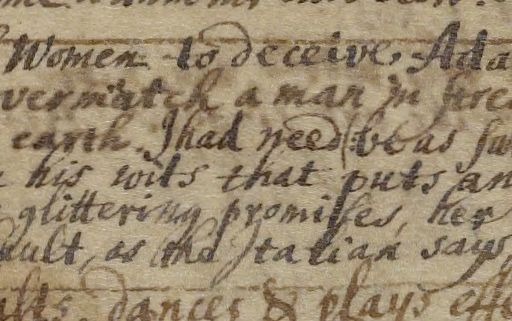 Women to deceive. Ada
vermatch a man in
earth. I had need be as
his wits that puts an
glittering promises, her
ault, as the Italian says,
dances & plays effe